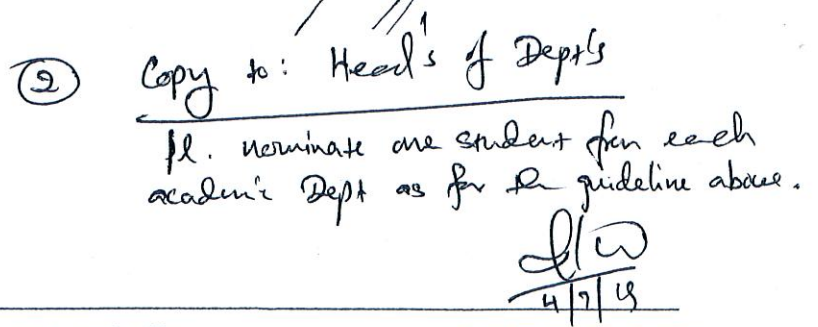 ② Copy to: Head's of Dept's
Pl. nominate one student from each
academic Dept as per the guideline above.
4/7/19